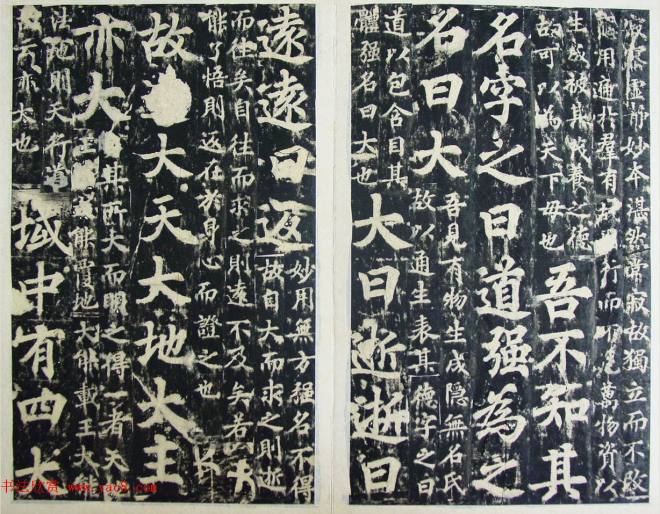 寂寥虛靜妙本湛然常寂故獨立而不改
用遍於羣有行而不危萬物資以
生成被其茂養之德
故可以為天下母也
吾不知其
名字之曰道强為之
名曰大
吾見有物生成隱無名氏
故以通生表其德字之曰
道以包含目其
體强名曰大也
大曰逝逝曰
遠遠曰返
妙用無方强名不得
故自大而求之則逝
而往矣自往而求之則遠不及矣若
能了悟則返在於身心而證之也
故大天大地大王
亦大
其所大而明之得一者天
王能覆地大能載王大
法地則天行道
云亦大也
域中有四大
书法欣赏 www.yac8.com